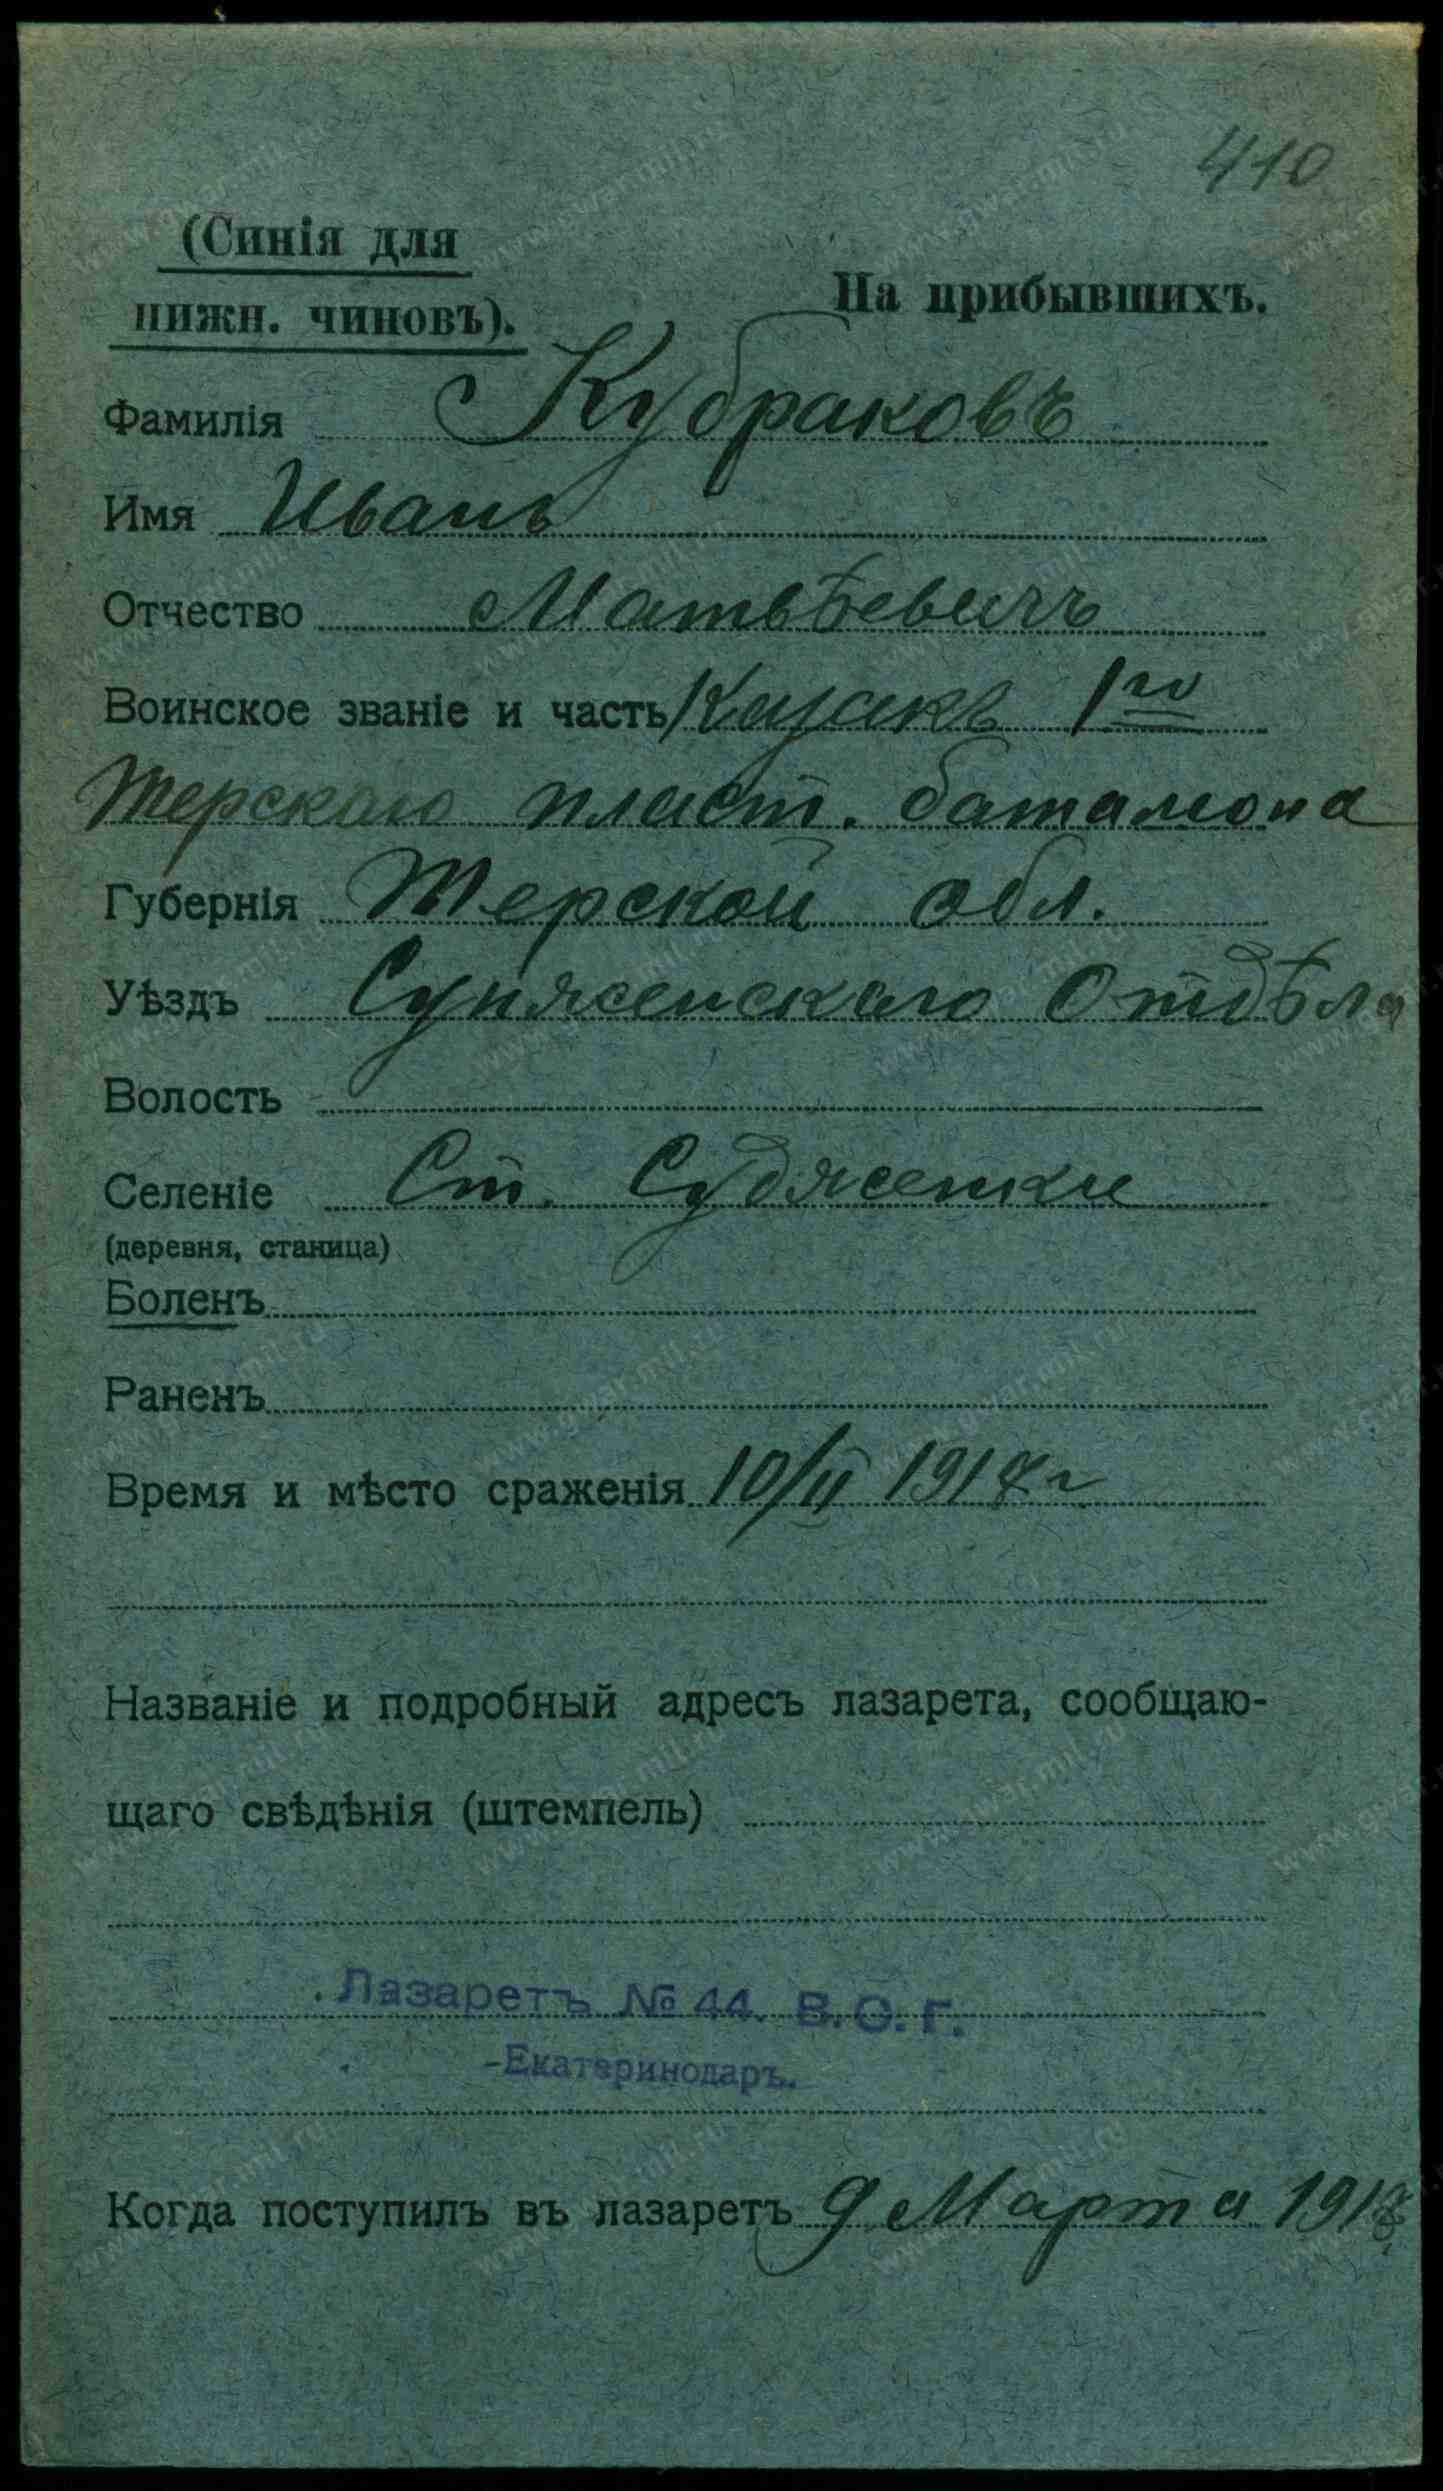 410
(Синія для
нижн. чиновъ).
На прибывшихъ.
Фамилія Кубраковъ
Имя Иванъ
Отчество Матвѣевичъ
Воинское званіе и часть Казакъ 1го
Терскаго пласт. баталіона
Губернія Терской обл.
Уѣздъ Сунженскаго Отдѣла
Волость
Селеніе Ст.
(деревня, станица)
Боленъ
Раненъ
Время и мѣсто сраженія 10/II 1917 г
Названіе и подробный адресъ лазарета, сообщаю-
щаго свѣдѣнія (штемпель)
Лазаретъ № 44. В.С.Г.
-Екатеринодаръ.
Когда поступилъ въ лазаретъ 9 Марта 1917
www.gwar.mil.ru